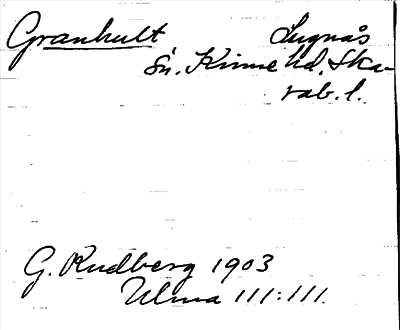 Granhult Lugnås
sn. Kinne hd. Ska-
rab. l.
G. Rudberg 1903
Ulma 111:111.